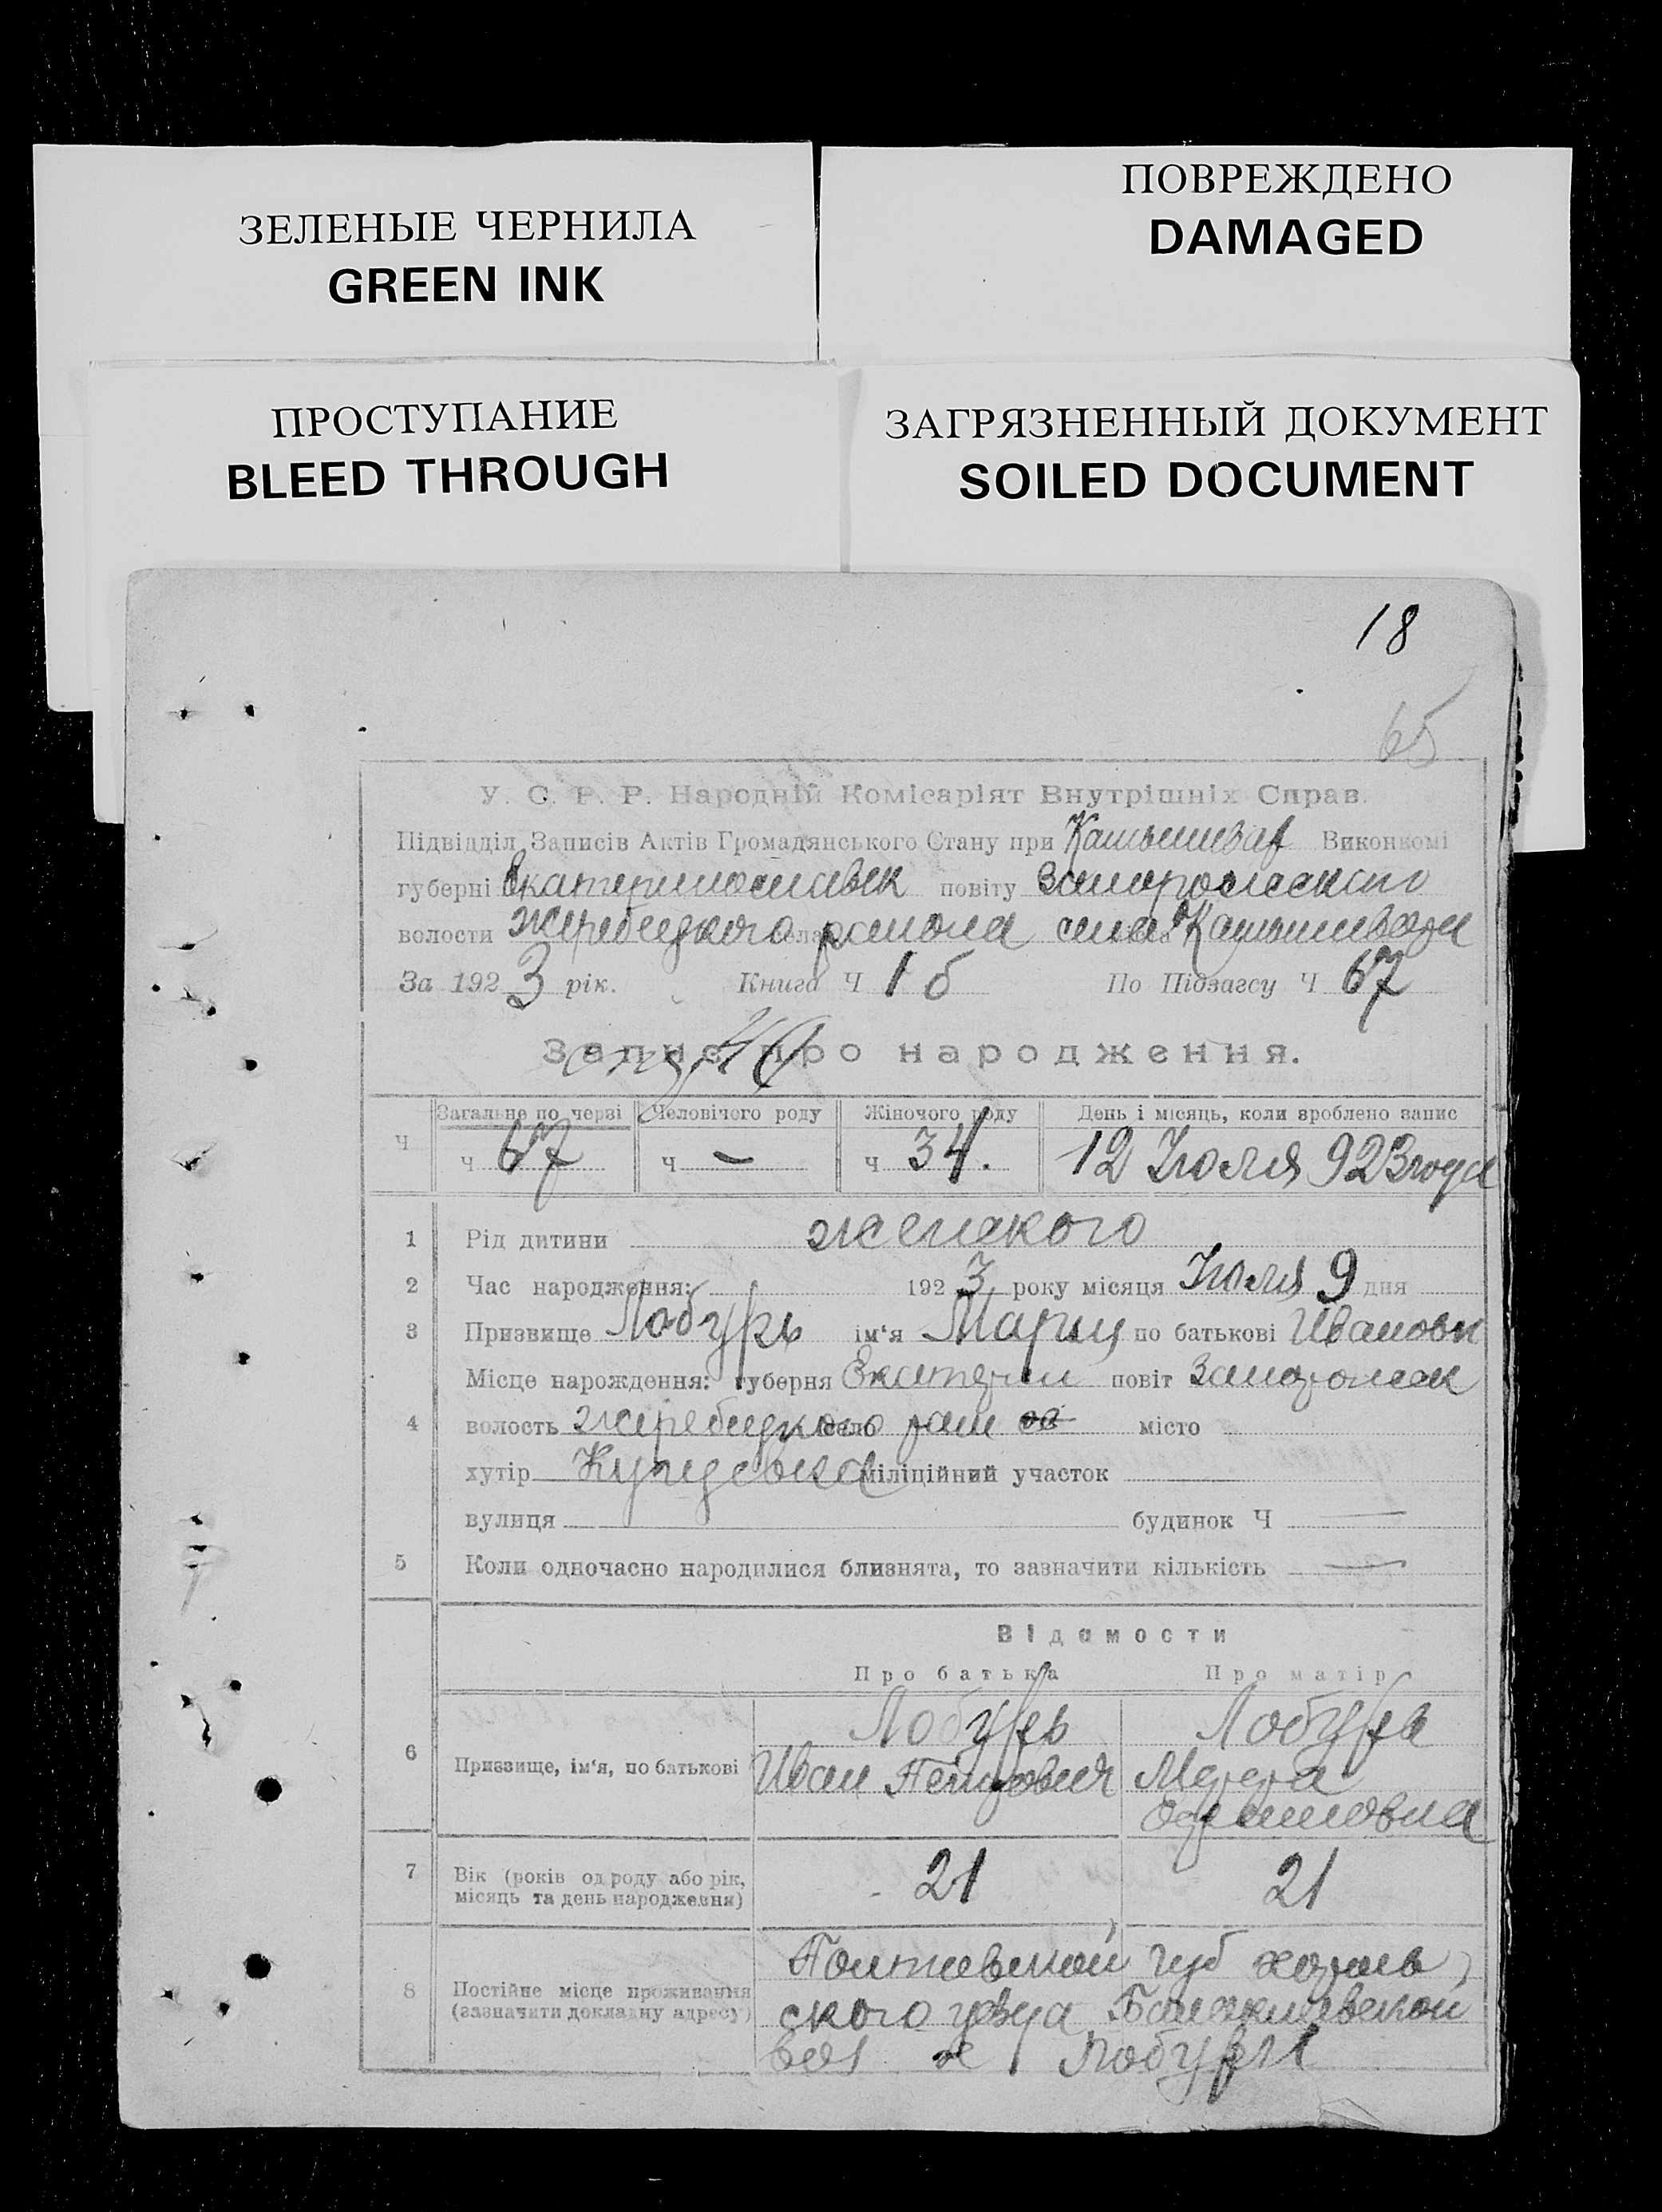 ЗЕЛЕНЫЕ ЧЕРНИЛА
GREEN INK
ПОВРЕЖДЕНО
DAMAGED
ПРОСТУПАНИЕ
BLEED THROUGH
ЗАГРЯЗНЕННЫЙ ДОКУМЕНТ
SOILED DOCUMENT
18
65
У. С. Р. Р. Народній Комісаріят Внутрішніх Справ.
Підвідділ Записів Актів Громадянського Стану при Виконкомі
губерні Екатеринославск повіту Запорожского
волости Жеребецкого района села
За 1923 рік. Книга Ч 1 б По Підзагсу Ч 67
Запис про народження.
Ч Загальне по черві Человічего роду Жіночого роду День і місяць, коли зроблено запис
ч 67 ч — ч 34. 12 Июля 923 года
1 Рід дитини женского
2 Час народження: 1923 року місяця Июля 9 дня
3 Призвище Лобурь ім‘я Мария по батькові Ивановн
Місце нарождення: губерня Екатерин повіт Запорожск
4 волость Жеребецкого село рай місто
хутір міліційний участок —
вулиця будинок Ч —
5 Коли одночасно народилися близнята, то зазначити кількість —
Відамости
Про батька Про матір
6 Призвище, ім‘я, по батькові Лобурь Лобурь
Иван Петрович
7 Вік (років од роду або рік, місяць та день народження) 21 21
8 Постійне місце проживання (зазначити докладну адресу) Полтавской губ хороль
ского уезда
вол с Лобури